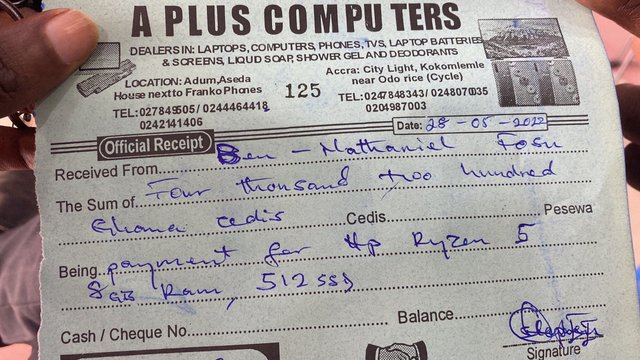 A PLUS COMPUTERS
DEALERS IN: LAPTOPS, COMPUTERS, PHONES, TVS, LAPTOP BATTERIES
& SCREENS, LIQUID SOAP, SHOWER GEL AND DEODORANTS
LOCATION: Adum,Aseda
House next to Franko Phones
TEL:027849505/ 0244464418
0242141406
125
Accra: City Light, Kokomlemle
near Odo rice (Cycle)
TEL:0247848343/ 0248070035
0204987003
Date: 28-05-2022
Official Receipt
Received From Ben - Nathaniel Fosu
The Sum of Four thousand two hundred
Ghana cedis Cedis Pesewa
Being payment for Hp Ryzen 5
8GB Ram, 512 SSD
Cash / Cheque No. Balance
Signature